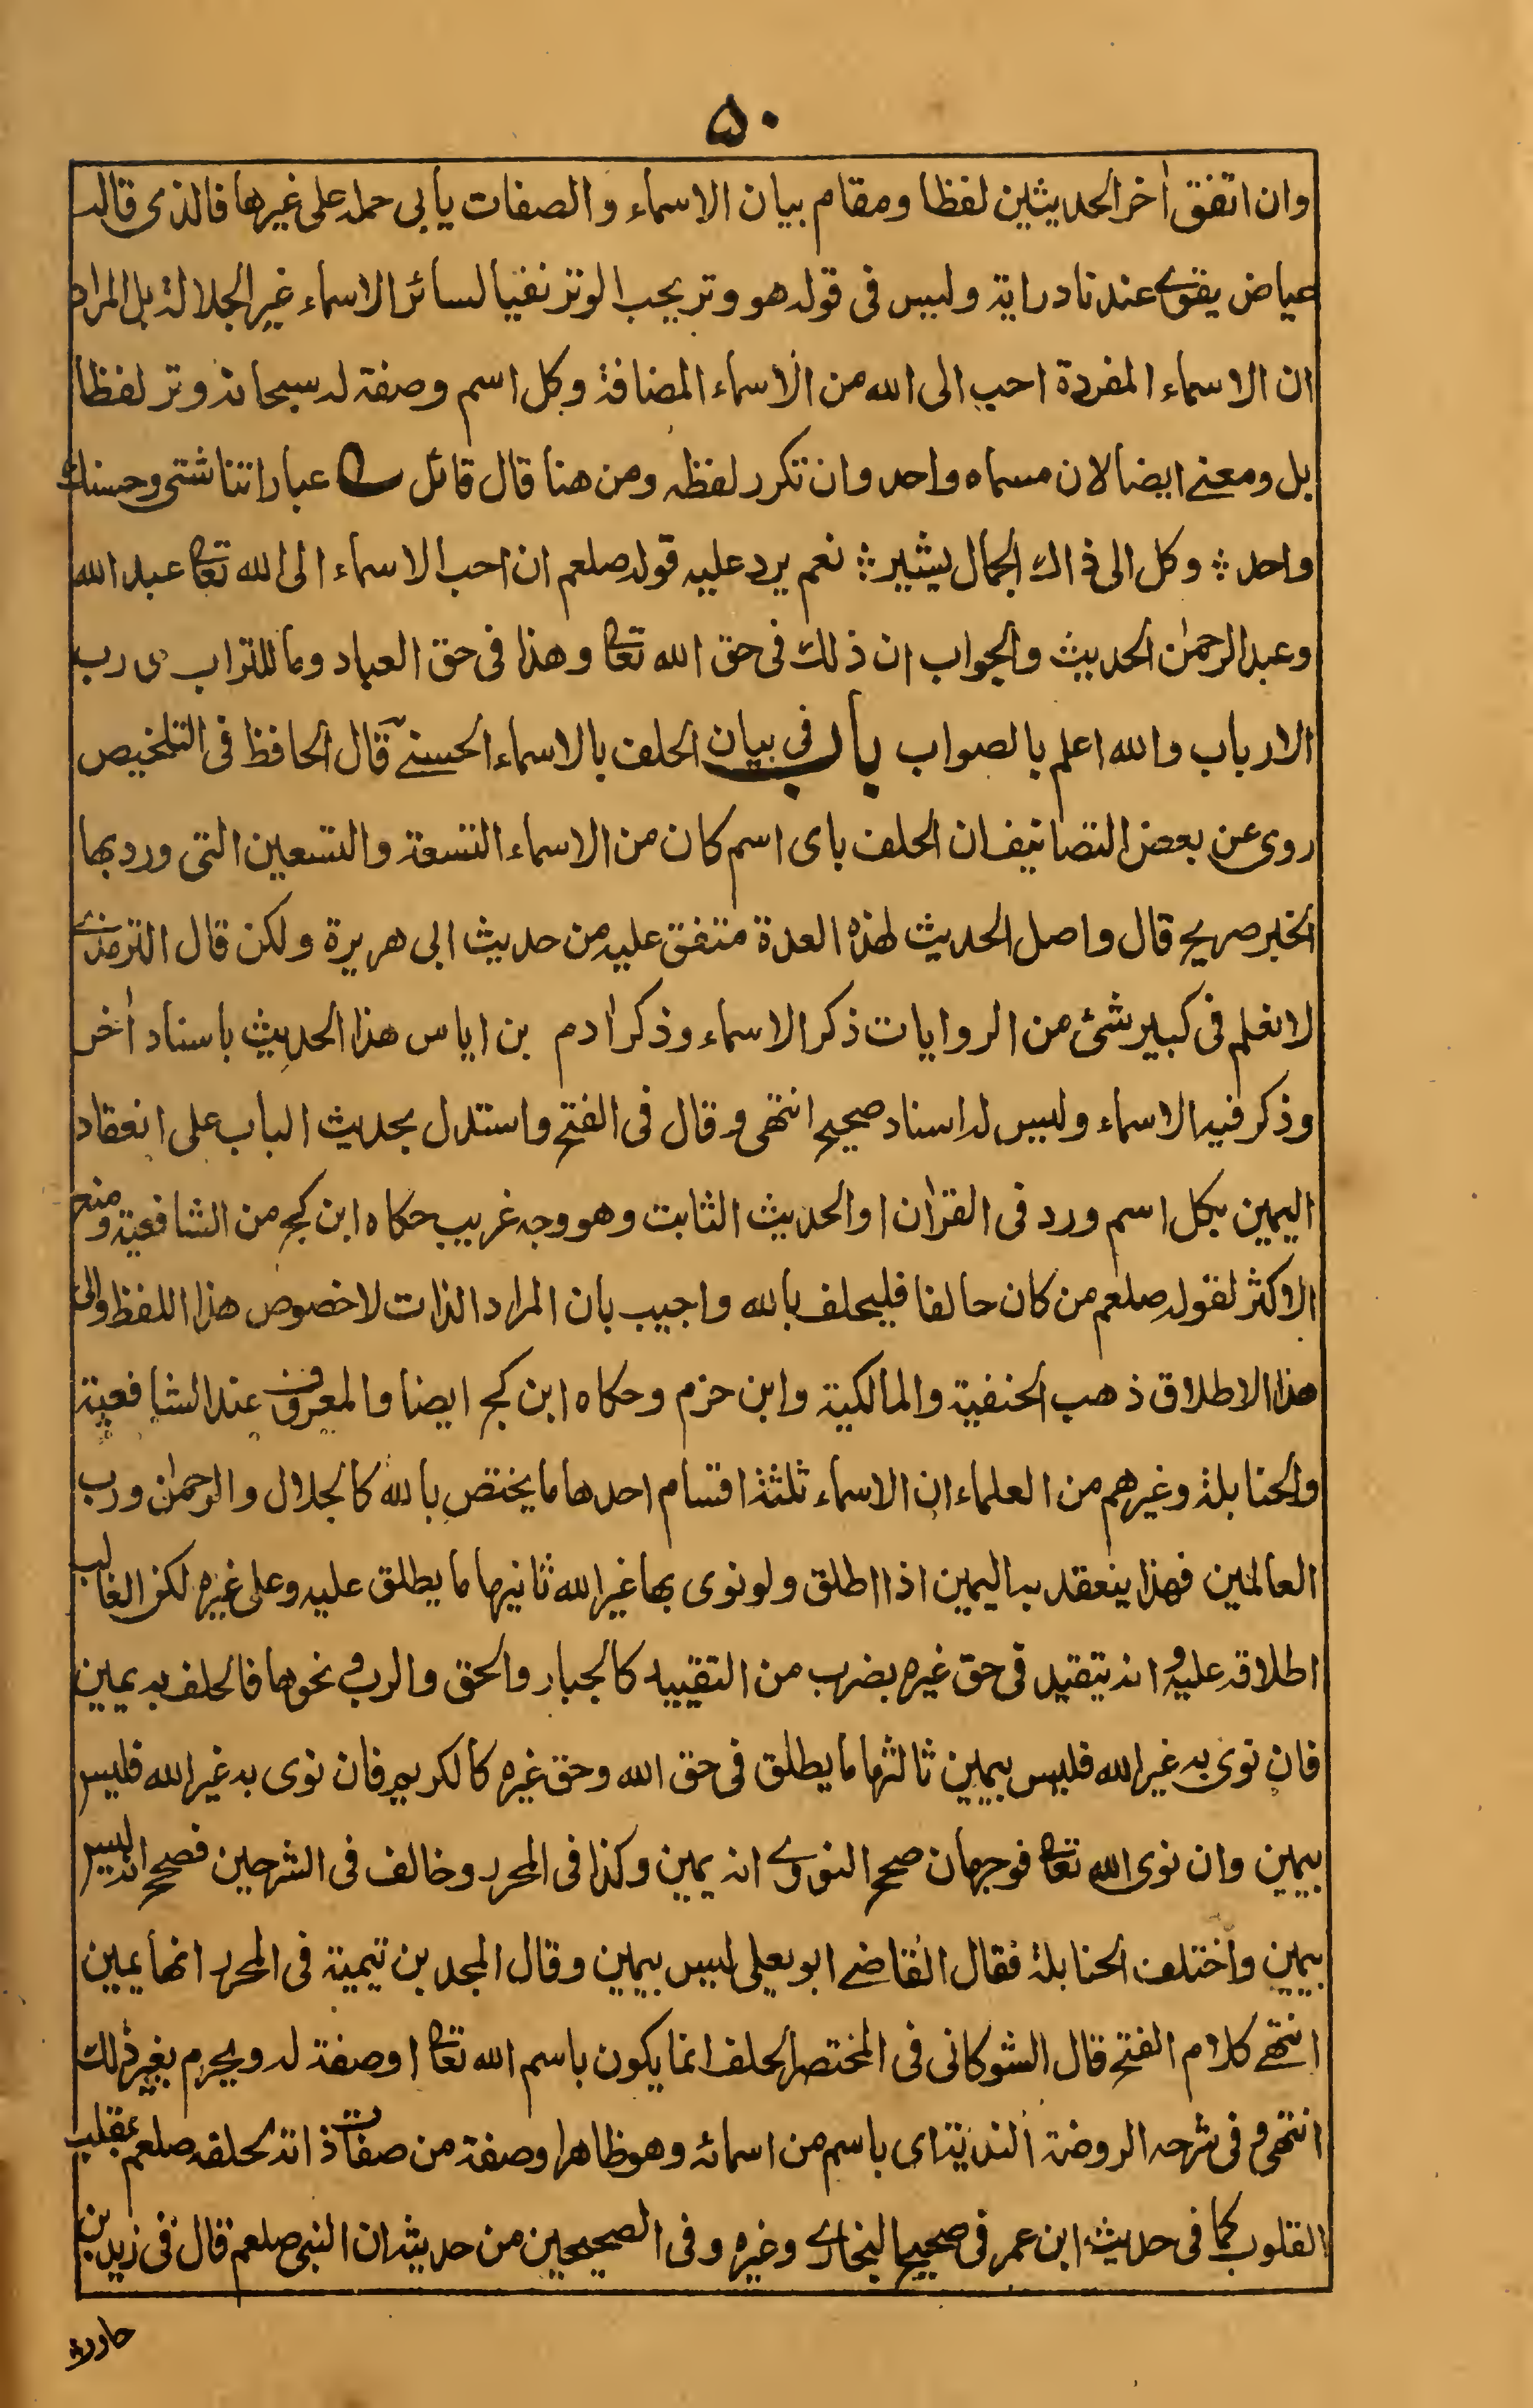 ۵۰
وان اتفق اٰخر الحديثين لفظا ومقام بيان الاسماء والصفات يأبى حمله على غيرها فالذى قاله
عياض يقوى عندنا دراية وليس فى قوله هو وتر يحب الوتر نفيا لسائر الاسماء غير الجلالة بل المراد
ان الاسماء المفردة احب الى الله من الاسماء المضافة وكل اسم وصفة له سبحانه وتر لفظا
بل ومعنے ايضا لان مسماه واحد وان تكرر لفظه ومن هنا قال قائل عباراتنا شتى وحسنك
واحد ؞ وكل الى ذاك الجمال يشير ؞ نعم يرد عليه قوله صلعم ان احب الاسماء الى الله تعا عبد الله
وعبد الرحمٰن الحديث والجواب ان ذلك فى حق الله تعا وهذا فى حق العباد وما للتراب ى رب
الارباب والله اعلم بالصواب باب فى بيان الحلف بالاسماء الحسنےٰ قال الحافظ فى التلخيص
روى عن بعض التصانيف ان الحلف باى اسم كان من الاسماء التسعة والتسعين التى ورد بها
الخبر صريح قال واصل الحديث لهذه العدة متفق عليه من حديث ابى هريرة ولكن قال الترمذے
لا نعلم فى كبير شئ من الروايات ذكر الاسماء وذكر اٰدم بن اياس هذا الحديث باسناد اٰخر
وذكر فيه الاسماء وليس له اسناد صحيح انتهى وقال فى الفتح واستدل بحديث الباب على انعقاد
اليمين بكل اسم ورد فى القراٰن او الحديث الثابت وهو وجه غريب حكاه ابن كج من الشافعية ومنع
الاكثر لقوله صلعم من كان حالفا فليحلف بالله واجيب بان المراد الذات لا خصوص هذا اللفظ والى
هذا الاطلاق ذهب الحنفية والمالكية وابن حزم وحكاه ابن كج ايضا والمعروف عند الشافعية
والحنابلة وغيرهم من العلماء ان الاسماء ثلثة اقسام احدها ما يختص بالله كالجلال والرحمٰن ورب
العالمين فهذا ينعقد به اليمين اذا اطلق ولو نوى بها غير الله ثانيها ما يطلق عليه وعلى غيره لكن الغالب
اطلاقه عليه وانه يتقيد فى حق غيره بضرب من التقييد كالجبار والحق والرب ونحوها فالحلف به يمين
فان نوى به غير الله فليس بيمين ثالثها ما يطلق فى حق الله وحق غيره كالكريم فان نوى به غير الله فليس
بيمين وان نوى الله تعا فوجهان صحح النووے انه يمين وكذا فى المحرر وخالف فى الشرحين فصحح انه ليس
بيمين واختلف الحنابلة فقال القاضے ابو يعلى ليس بيمين وقال المجد بن تيمية فى المحرر انها يمين
انتهے كلام الفتح قال الشوكانى فى المختصر الحلف انما يكون باسم الله تعا اوصفة له ويحرم بغير ذلك
انتهى وفى شرحه الروضة الندية اى باسم من اسمائه وهو ظاهر اوصفة من صفات ذاته لحلفه صلعم بمقلب
القلوب كما فى حديث ابن عمر فى صحيح البخارے وغيره وفى الصحيحين من حديثه ان النبى صلعم قال فى زيد بن
حارثة